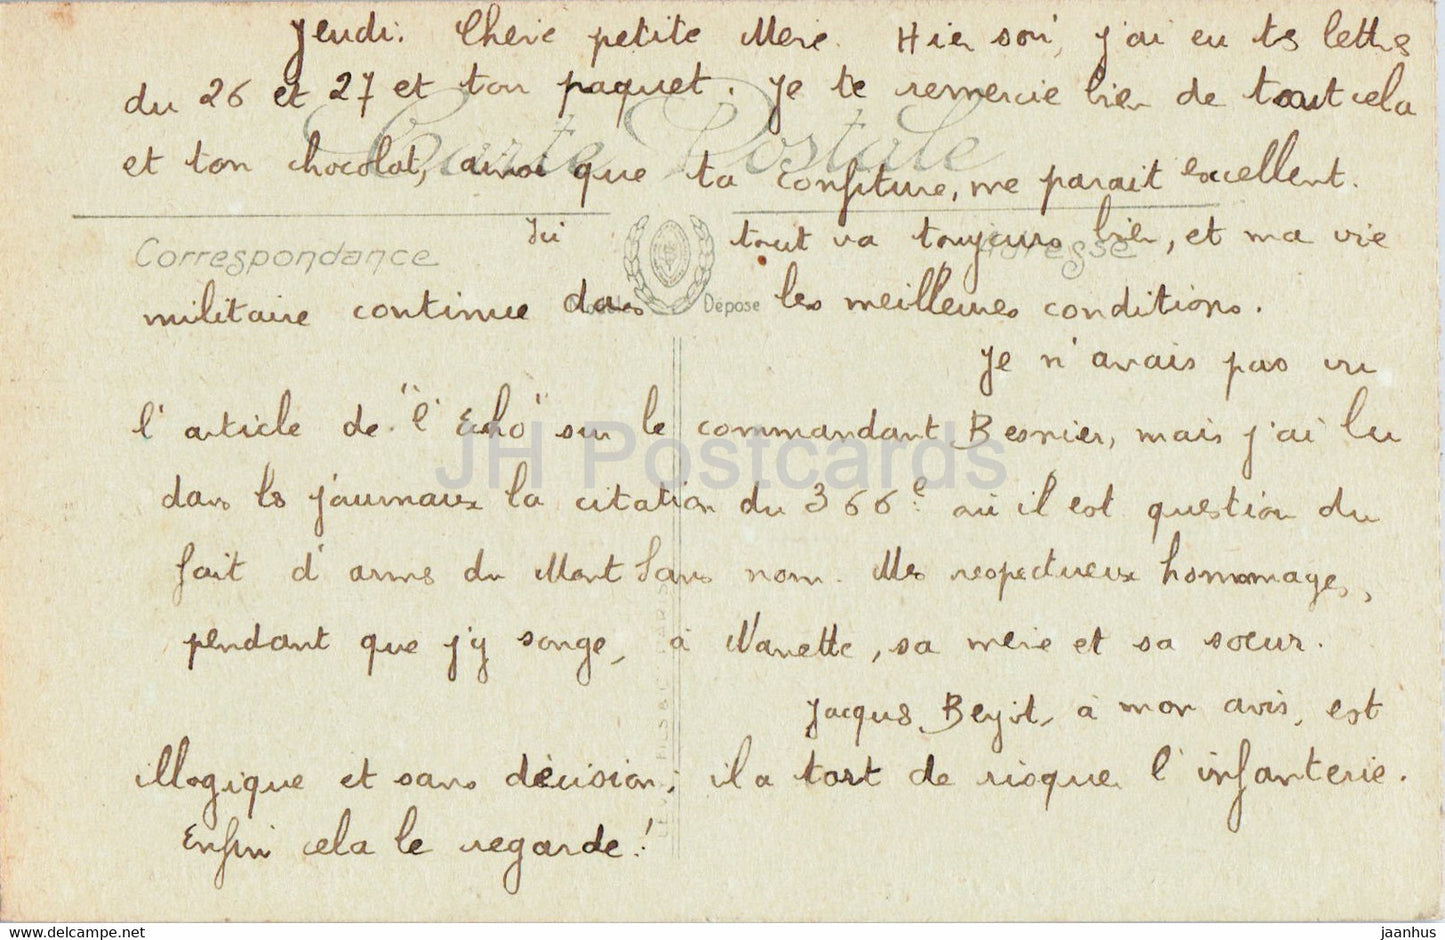 Jeudi. Chère petite Mère. Hier soir, j'ai eu tes lettres
du 26 et 27 et ton paquet. Je te remercie bien de tout cela
Carte Postale
et ton chocolat, ainsi que ta confiture, me parait excellent.
Ici tout va toujours bien, et ma vie
Correspondance
Adresse
militaire continue dans les meilleures conditions.
Déposé
Je n'avais pas vu
l'article de "l'Echo" sur le commandant Besnier, mais j'ai lu
JH Postcards
dans les journaux la citation du 366e où il est question du
fait d'armes du Mont Sans nom. Mes respectueux hommages,
pendant que j'y songe, à Nanette, sa mère et sa soeur.
Jacques Beyot, à mon avis, est
illogique et sans décision; il a tort de risquer l'infanterie.
Enfin cela le regarde!
www.delcampe.net
jaanhus